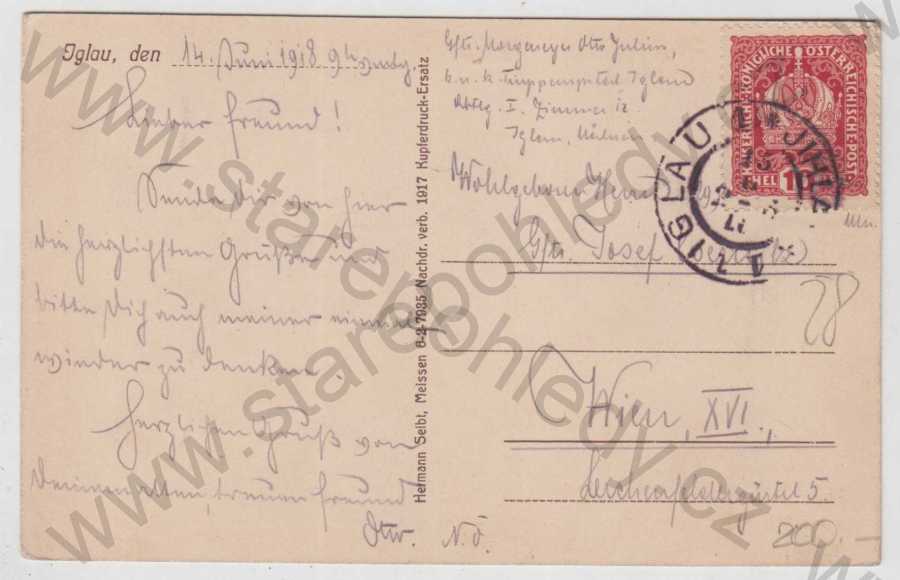 Iglau, den 14. Juni 1918
Lieber Freund!
Sende Dir von hier
die herzlichsten Grüße und
bitte Dich auch meiner einmal
wieder zu denken.
Herzlichen Gruß von
Deinem alten, treuen Freund
Hermann Seibt, Meissen 6-2-7935 Nachdr. verb. 1917 Kupferdruck-Ersatz
Otto Julius,
k. u. k. Truppenspital Iglau
Abtlg. I. Zimmer
Iglau, Mähren
KAISERLICHE KÖNIGLICHE ÖSTERREICHISCHE POST
HEL
IGLAU
JIHL
Wohlgeboren Herrn
Josef
28
Wien, XVI.,
Lerchenfeldergürtel 5.
200.-
www.starepohledy.cz